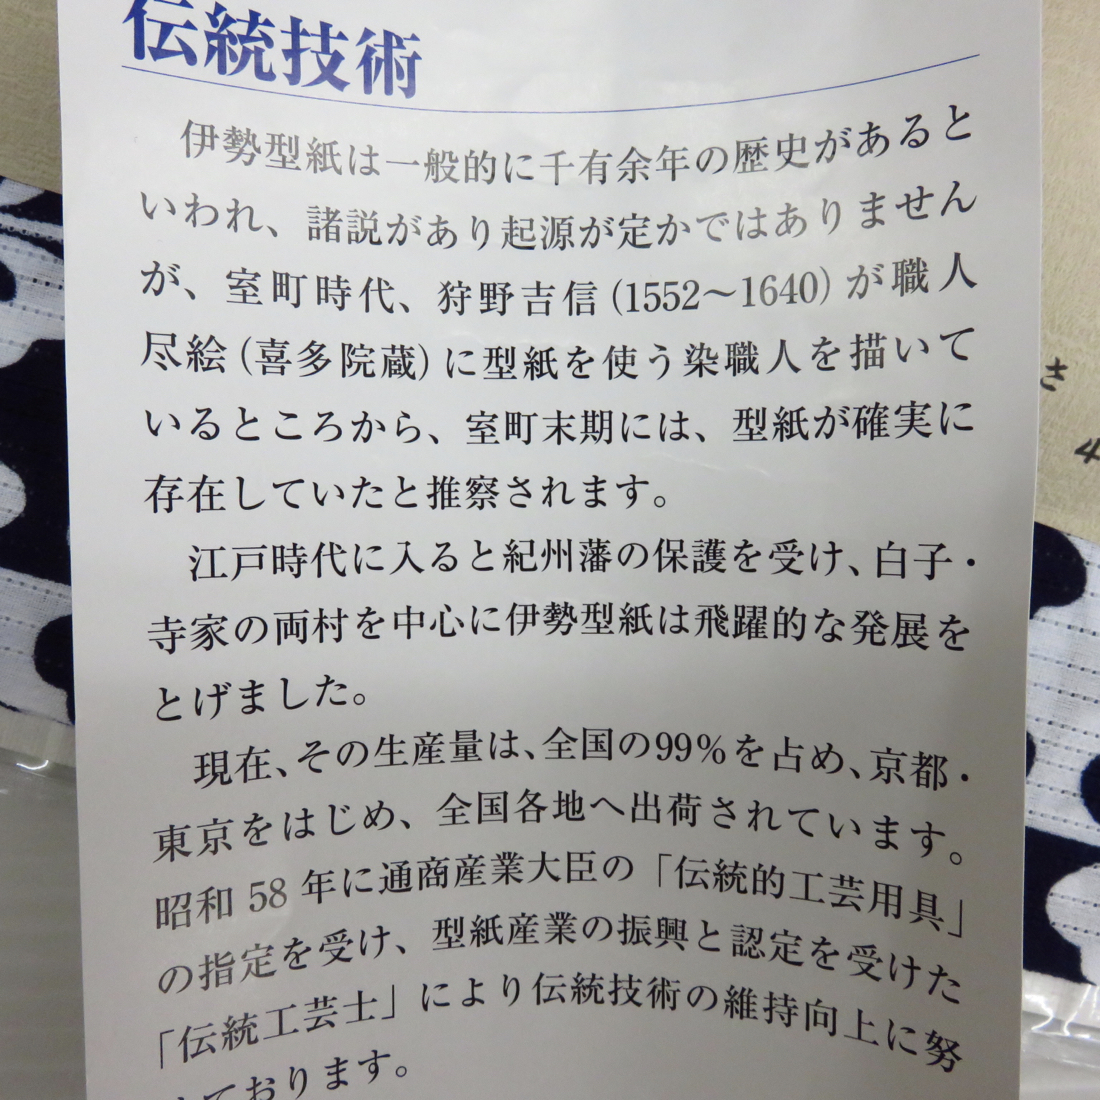 伝統技術
伊勢型紙は一般的に千有余年の歴史があると
いわれ、諸説があり起源が定かではありません
が、室町時代、狩野吉信(1552〜1640)が職人
尽絵(喜多院蔵)に型紙を使う染職人を描いて
いるところから、室町末期には、型紙が確実に
存在していたと推察されます。
江戸時代に入ると紀州藩の保護を受け、白子・
寺家の両村を中心に伊勢型紙は飛躍的な発展を
とげました。
現在、その生産量は、全国の99%を占め、京都・
東京をはじめ、全国各地へ出荷されています。
昭和58年に通商産業大臣の「伝統的工芸用具」
の指定を受け、型紙産業の振興と認定を受けた
「伝統工芸士」により伝統技術の維持向上に努
ております。
さ
4